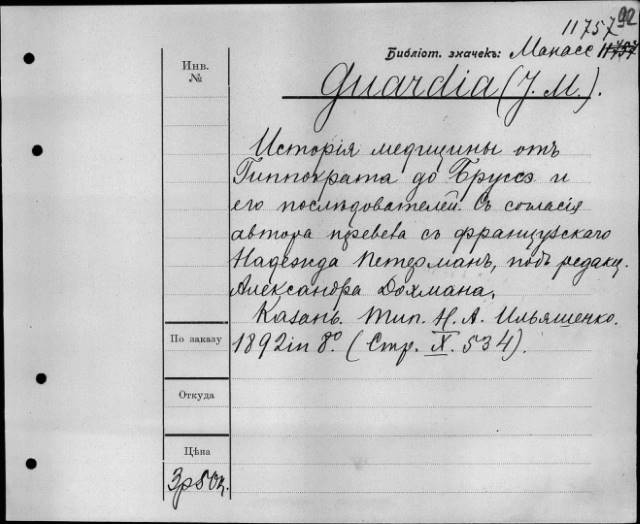 92
11757
Библіот. значекъ: Манасс 11757
Инв.
№
Guardia (J. M.).
Исторія медицины отъ
Гиппократа до Бруссэ и
его последователей. Съ согласія
автора перевела съ французскаго
Надежда Петерманъ, подъ редакц.
Александра Дохмана.
Казань. Тип. Н. А. Ильяшенко.
По заказу
1892 in 8º. (Стр. X. 534).
Откуда
Цѣна
3р50к.